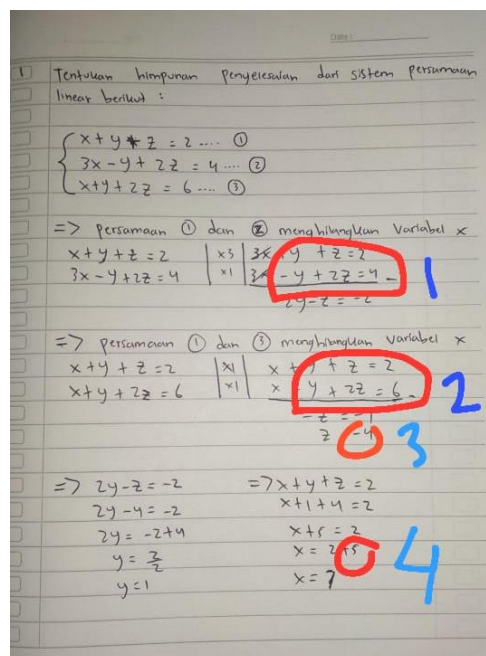 Date:
1 Tentukan himpunan penyelesaian dari sistem persamaan
linear berikut :
x + y + z = 2 .... ①
3x - y + 2z = 4 .... ②
x + y + 2z = 6 .... ③
=> persamaan ① dan ② menghilangkan variabel x
x + y + z = 2 | x3 | 3x + y + z = 2
3x - y + 2z = 4 | x1 | 3x - y + 2z = 4 -
1
2y - z = -2
=> persamaan ① dan ③ menghilangkan variabel x
x + y + z = 2 | x1 | x + y + z = 2
x + y + 2z = 6 | x1 | x y + 2z = 6 -
2
-z = -1
z -4
3
=> 2y - z = -2
2y - 4 = -2
2y = -2+4
y = 2/2
y = 1
=> x + y + z = 2
x + 1 + 4 = 2
x + 5 = 2
x = 2+5
x = 7
4